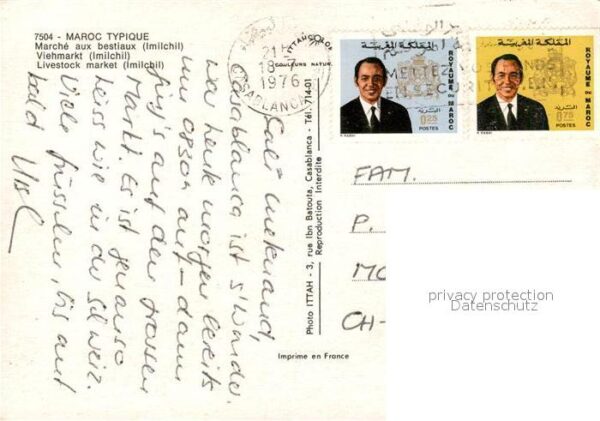 7504 - MAROC TYPIQUE
Marché aux bestiaux (Imilchil)
Viehmarkt (Imilchil)
Livestock market (Imilchil)
Sali mitenand,
Casablanca ist s'Wunder.
Wir heute morgen bereits
um auf - dann
ging's auf den grossen
Markt. Es ist genauso
heiss wie in der Schweiz.
Viele Grüsslein, bis auf
bald
ITTAHCOLOR
COULEURS NATUR.
Photo ITTAH - 3, rue Ibn Batouta, Casablanca - Tél. 714-01
Reproduction Interdite
Imprime en France
18-7
1976
CASABLANCA
METTEZ
EN SEC
المملكة المغربية
ROYAUME DU MAROC
0.25
POSTES
المملكة المغربية
ROYAUME DU MAROC
0.75
POSTES
FAM.
P.
MO
CH-
privacy protection
Datenschutz